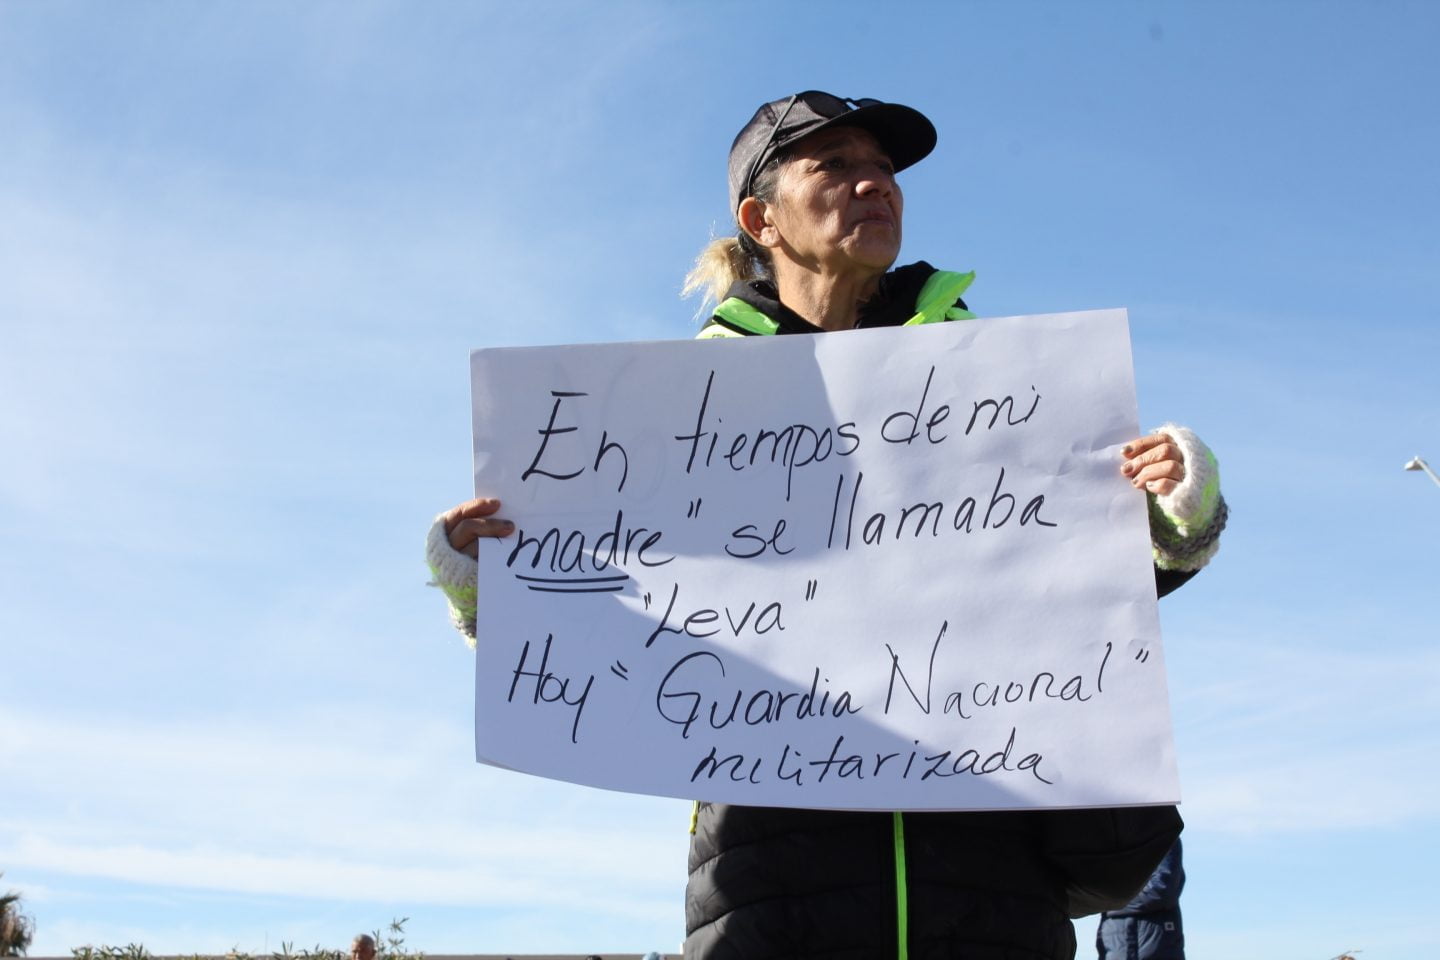 En tiempos de mi
madre" se llamaba
"Leva"
Hoy "Guardia Nacional"
militarizada